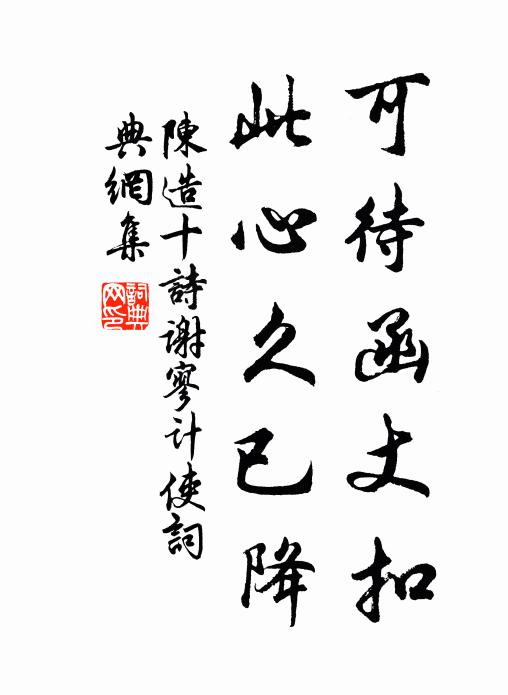 可待函丈扣
此心久已降
陳造十詩謝寥計使詞
典網集
詞典
网印